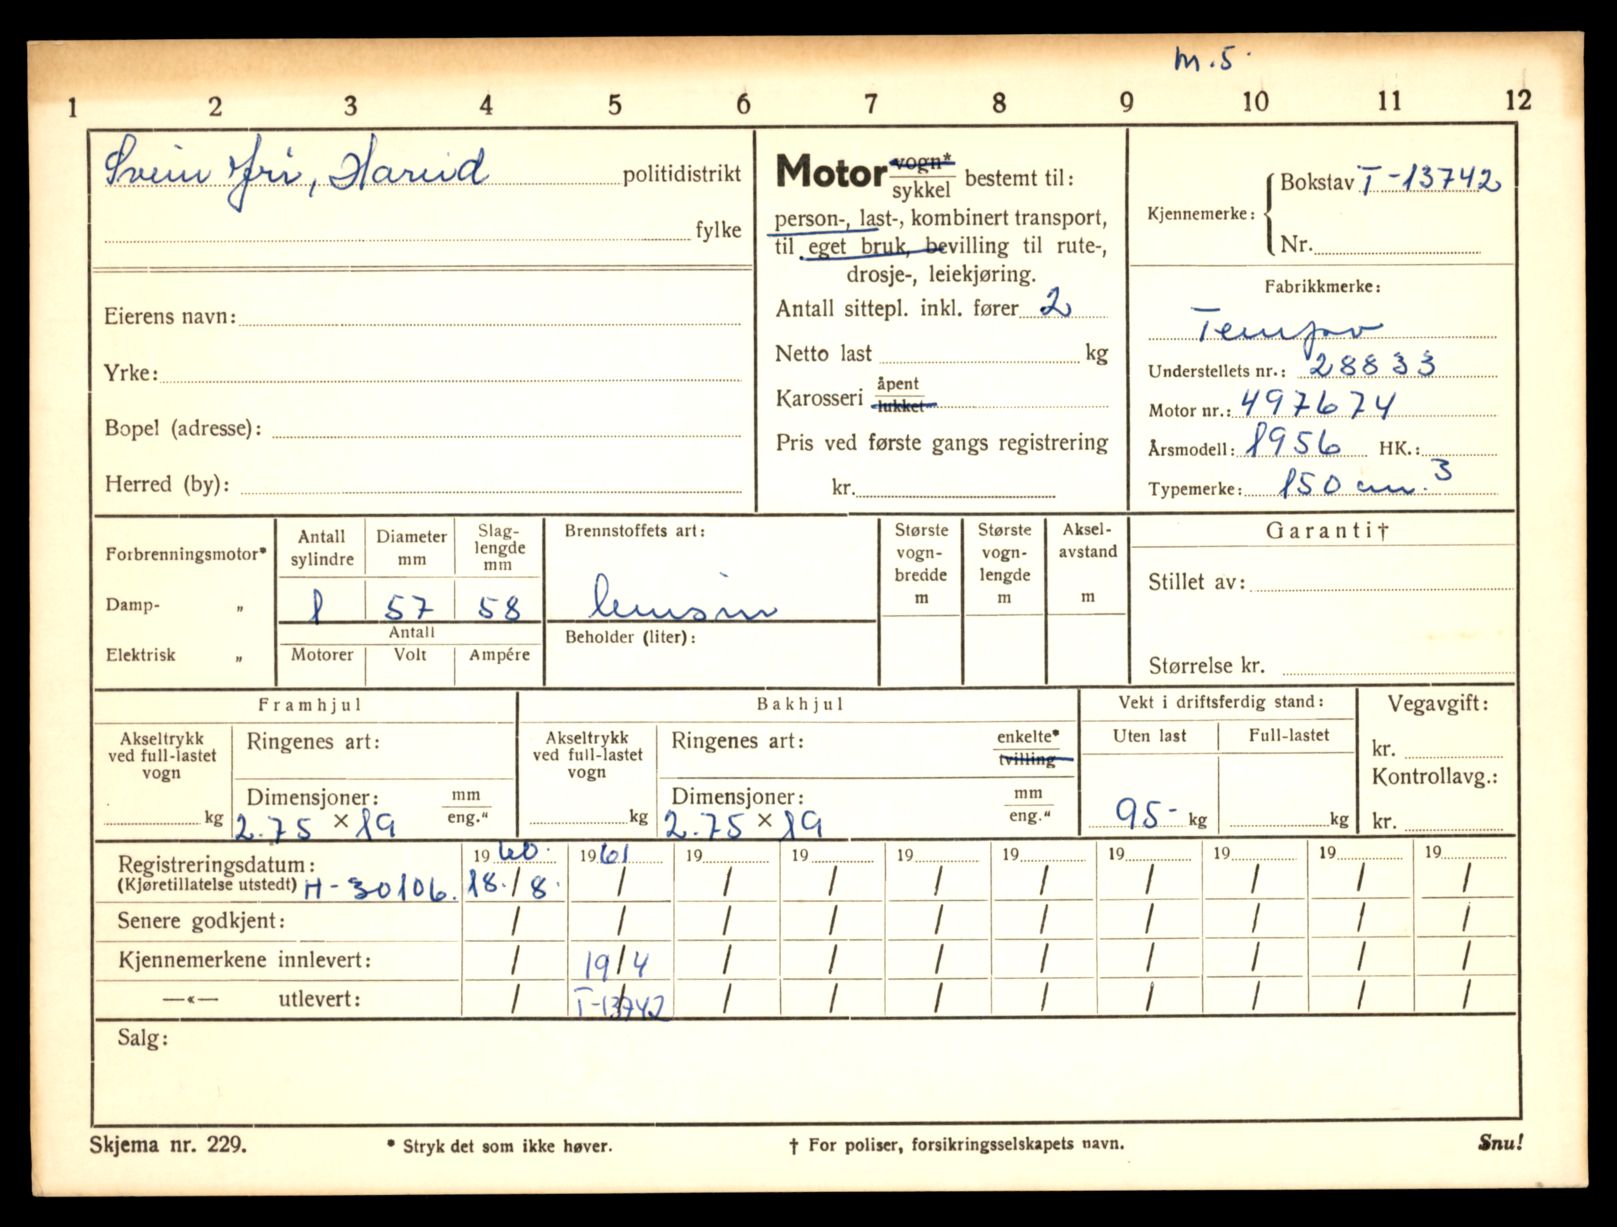 m.5.
1 2 3 4 5 6 7 8 9 10 11 12
Svein Yri, Hareid politidistrikt
fylke
Eierens navn:
Yrke:
Bopel (adresse):
Herred (by):
Motor vogn*
sykkel bestemt til:
person-, last-, kombinert transport,
til eget bruk, bevilling til rute-,
drosje-, leiekjøring.
Antall sittepl. inkl. fører 2
Netto last kg
Karosseri åpent
lukket
Pris ved første gangs registrering
kr.
Kjennemerke:
Bokstav T-13742
Nr.
Fabrikkmerke:
Tempo
Understellets nr.: 28833
Motor nr.: 497674
Årsmodell: 1956 HK.:
Typemerke: 150 cm.3
Forbrenningsmotor*
Damp- „
Elektrisk „
Antall sylindre
1
Diameter mm
57
Slag-
lengde
mm
58
Antall
Motorer Volt Ampére
Brennstoffets art:
bensin
Beholder (liter):
Største
vogn-
bredde
m
Største
vogn-
lengde
m
Aksel-
avstand
m
Garanti†
Stillet av:
Størrelse kr.
Framhjul
Akseltrykk
ved full-lastet
vogn
kg
Ringenes art:
Dimensjoner: mm
eng."
2.75 × 19
Bakhjul
Akseltrykk
ved full-lastet
vogn
kg
Ringenes art: enkelte*
tvilling
Dimensjoner: mm
eng."
2.75 × 19
Vekt i driftsferdig stand:
Uten last Full-lastet
95- kg kg
Vegavgift:
kr.
Kontrollavg.:
kr.
Registreringsdatum: 1960. 1961 19 19 19 19 19 19 19 19
(Kjøretillatelse utstedt) H-30106. 18./8. / / / / / / / / /
Senere godkjent: / / / / / / / / / /
Kjennemerkene innlevert: / 19/4 / / / / / / / /
—«— utlevert: / T-13742 / / / / / / / /
Salg:
Skjema nr. 229. * Stryk det som ikke høver. † For poliser, forsikringsselskapets navn. Snu!